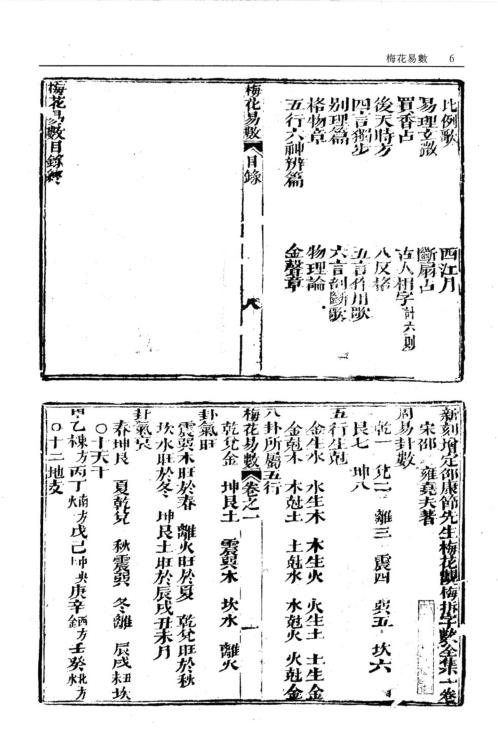 梅花易數 6
比例歌 西江月
易理玄微 斷扇占
買香占 古人相字計六則
後天時方 八反格
四言獨步 五言作用歌
別理篇 六言剖斷歌
格物章 物理論
五行六神辨篇 金聲章
梅花易數 目錄
梅花易數目錄終
新刻增定邵康節先生梅花觀梅拆字數全集一卷
宋邵 雍堯夫著
周易卦數
乾一 兌二 離三 震四 巽五 坎六
艮七 坤八
五行生剋
金生水 水生木 木生火 火生土 土生金
金剋木 木剋土 土剋水 水剋火 火剋金
八卦所屬五行
梅花易數 卷之一
乾兌金 坤艮土 震巽木 坎水 離火
卦氣旺
震巽木旺於春 離火旺於夏 乾兌旺於秋
坎水旺於冬 坤艮土旺於辰戌丑未月
卦氣衰
春坤艮 夏乾兌 秋震巽 冬離 辰戌丑未坎
○十天干
甲乙東方 丙丁南方 戊己中央 庚辛西方 壬癸北方
○十二地支